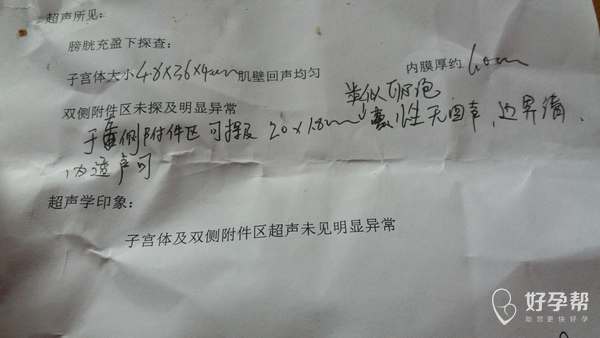 超声所见:
膀胱充盈下探查:
子宫体大小4.8×3.6×4cm肌壁回声均匀 内膜厚约1.0cm
双侧附件区未探及明显异常 类似卵泡
于 侧附件区可探及2.0×1.8cm囊性无回声,边界清、
内透声可
超声学印象:
子宫体及双侧附件区超声未见明显异常
好孕帮
能您更快好孕